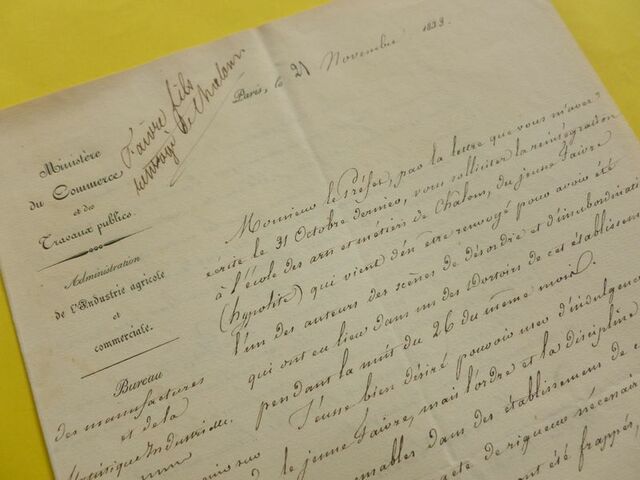 Ministère
du Commerce
et des
Travaux publics.
Administration
de l'Industrie agricole
et
commerciale.
Bureau
des manufactures
et de la
Statistique Industrielle.
Faivre fils
de Chalons.
Paris, le 21 Novembre 1833.
Monsieur le Préfet, par la lettre que vous m'avez
écrite le 31 Octobre dernier, vous sollicitez la réintégration
à l'école des arts et métiers de Chalons, du jeune Faivre
(hypolite) qui vient d'en être renvoyé pour avoir été
l'un des auteurs des scènes de désordre et d'insubordination
qui ont eu lieu dans un des dortoirs de cet établissement
pendant la nuit du 26 du même mois.
J'eusse bien désiré pouvoir user d'indulgence
le jeune Faivre, mais l'ordre et la discipline
dans des établissemens de c
de rigueur nécessaire
ont été frappés,